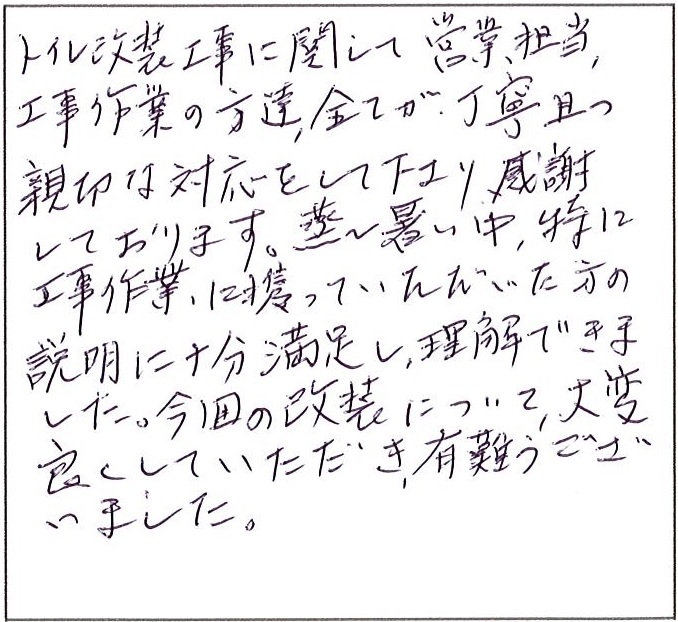 トイレ改装工事に関して営業、担当、
工事作業の方達、全てが丁寧且つ
親切な対応をして下さり、感謝
しております。蒸し暑い中、特に
工事作業に携っていただいた方の
説明に十分満足し、理解できま
した。今回の改装について、大変
良くしていただき、有難うござ
いました。